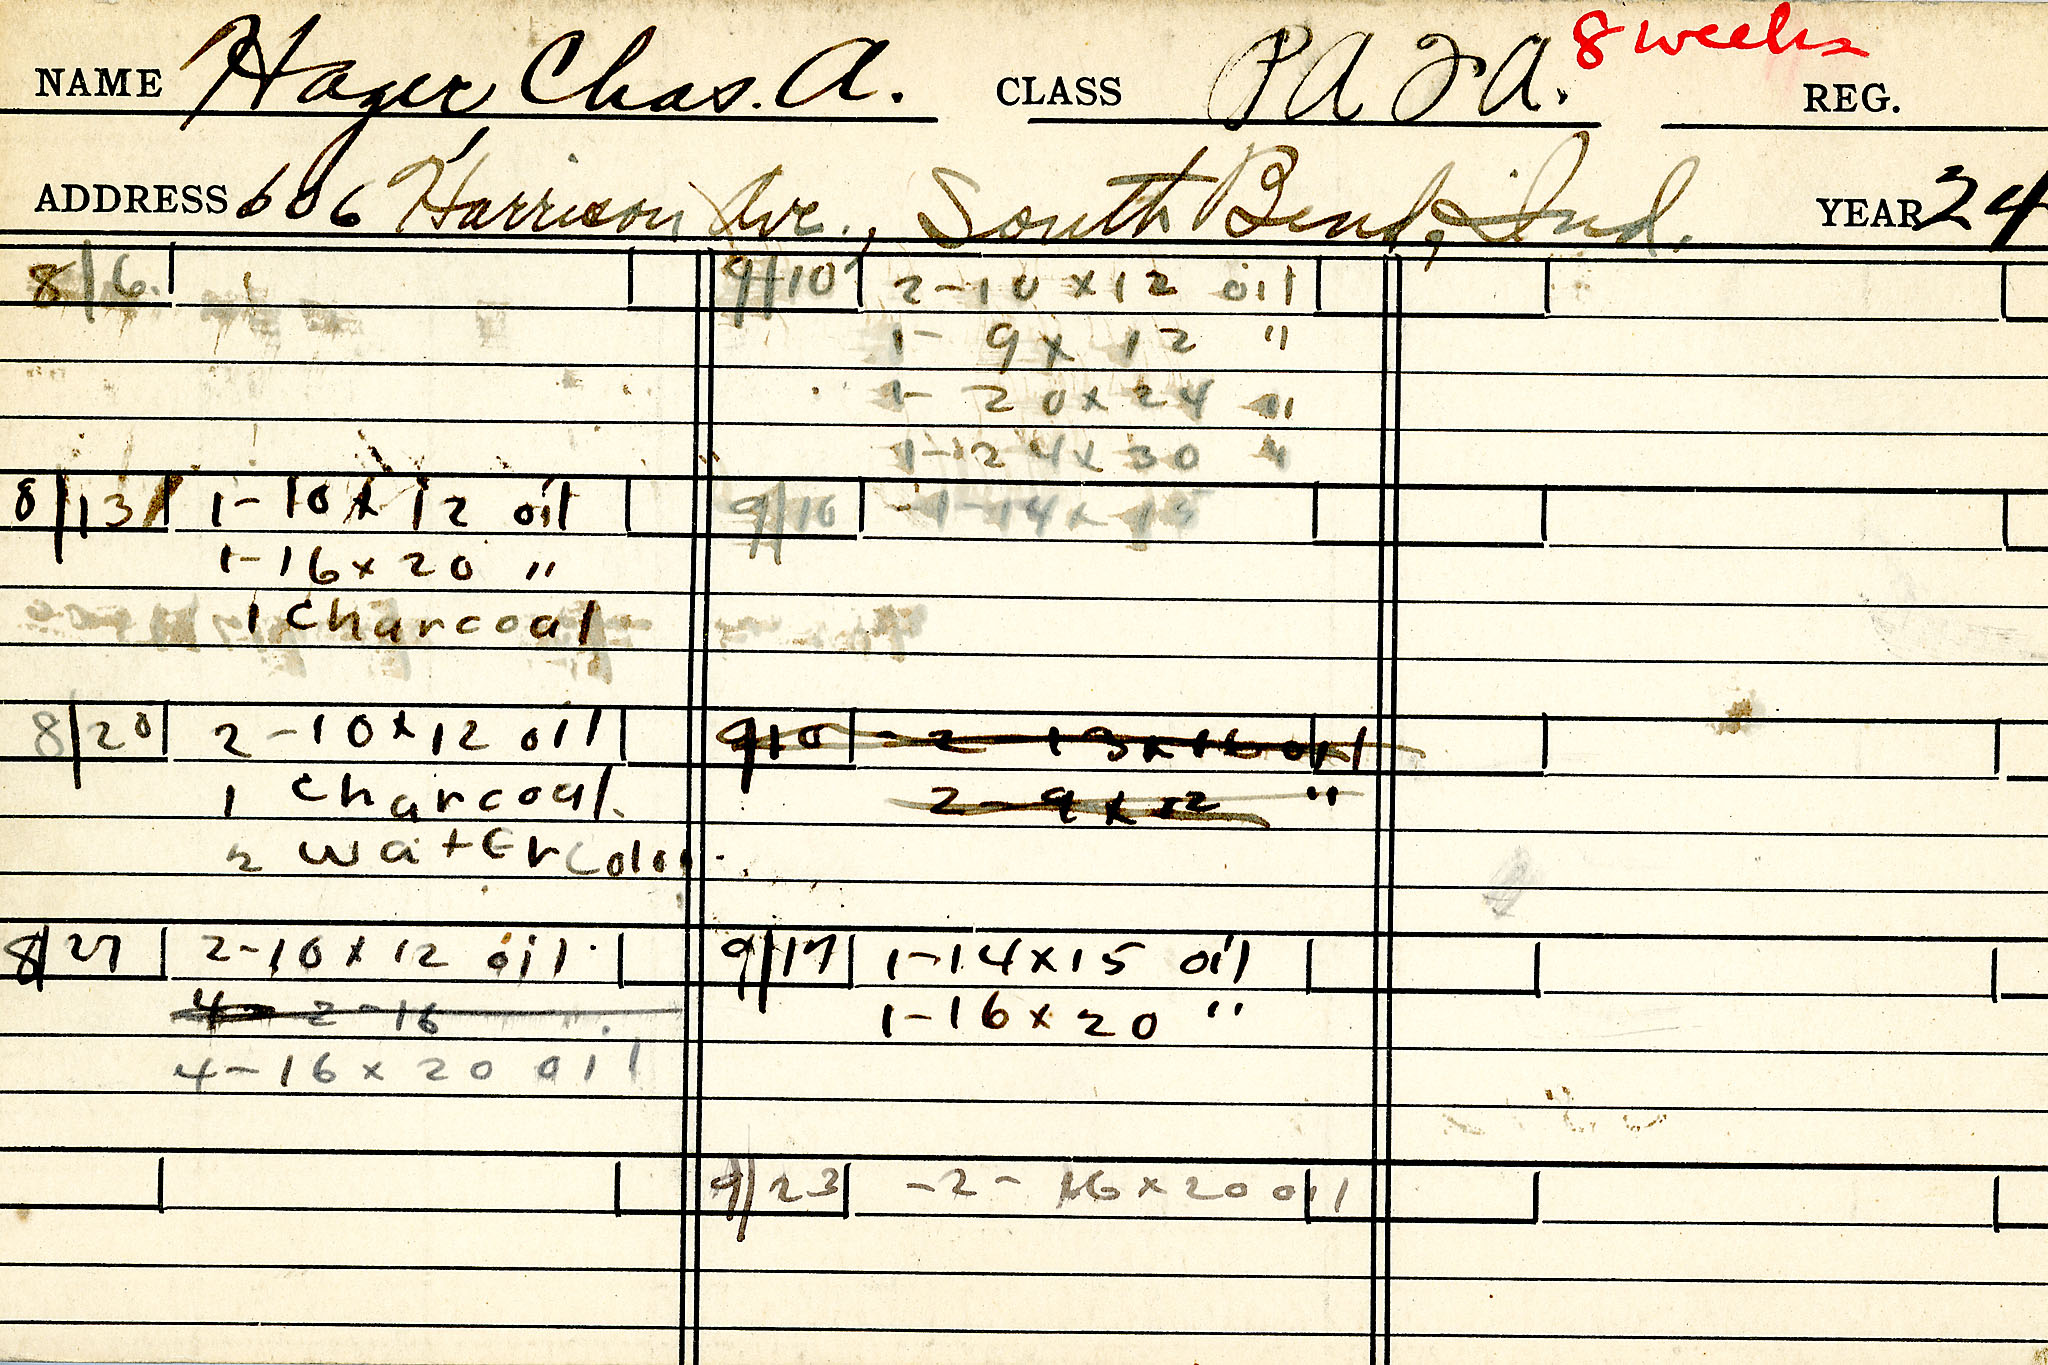 NAME Hager Chas. A. CLASS PAFA. 8 weeks REG.
ADDRESS 606 Harrison Ave., South Bend, Ind. YEAR 24
8/6
8/13 1-10x12 oil
1-16x20 "
1 charcoal
8/20 2-10x12 oil
1 charcoal.
2 watercolor
8/27 2-10x12 oil
4-2-16
4-16x20 oil
9/10 2-10x12 oil
1-9x12 "
1-20x24 "
1-24x30 "
9/10 -1-14x15
9/10 -2-13x16 oil
2-9x12 "
9/17 1-14x15 oil
1-16x20 "
9/23 -2-16x20 oil